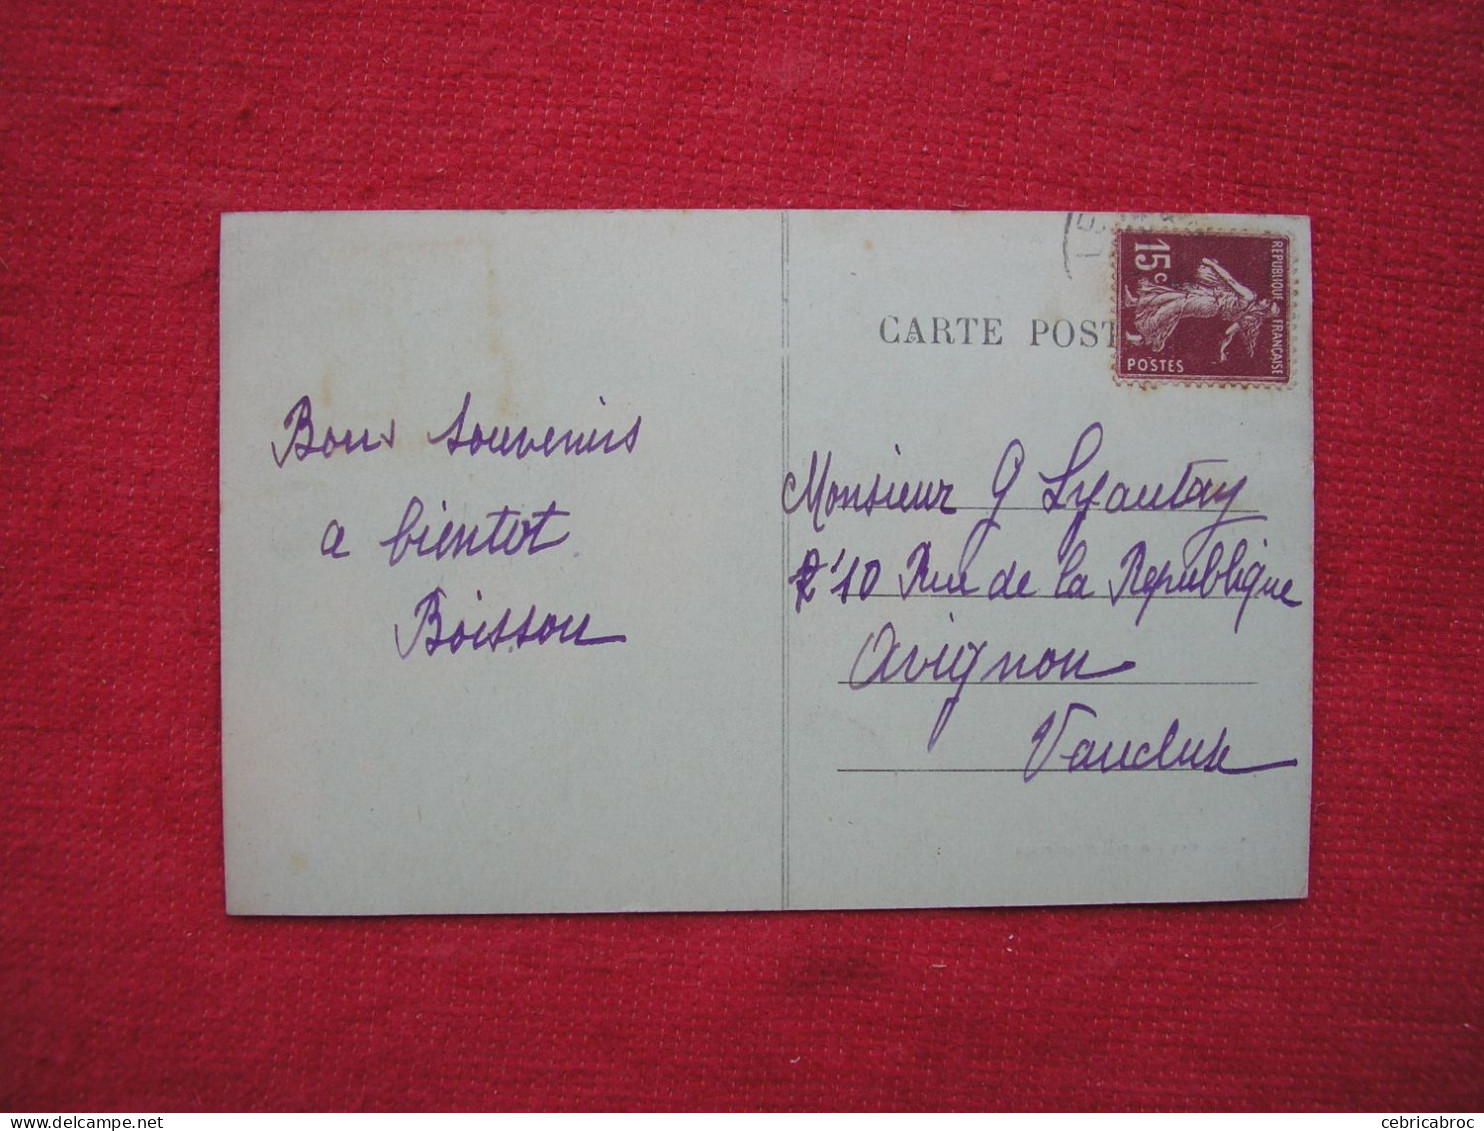 CARTE POST
15c
REPUBLIQUE FRANÇAISE
POSTES
Bons souvenirs
a bientot
Boisson
Monsieur G Lyautay
10 Rue de la Republique
Avignon
Vaucluse
www.delcampe.net
cebricabroc